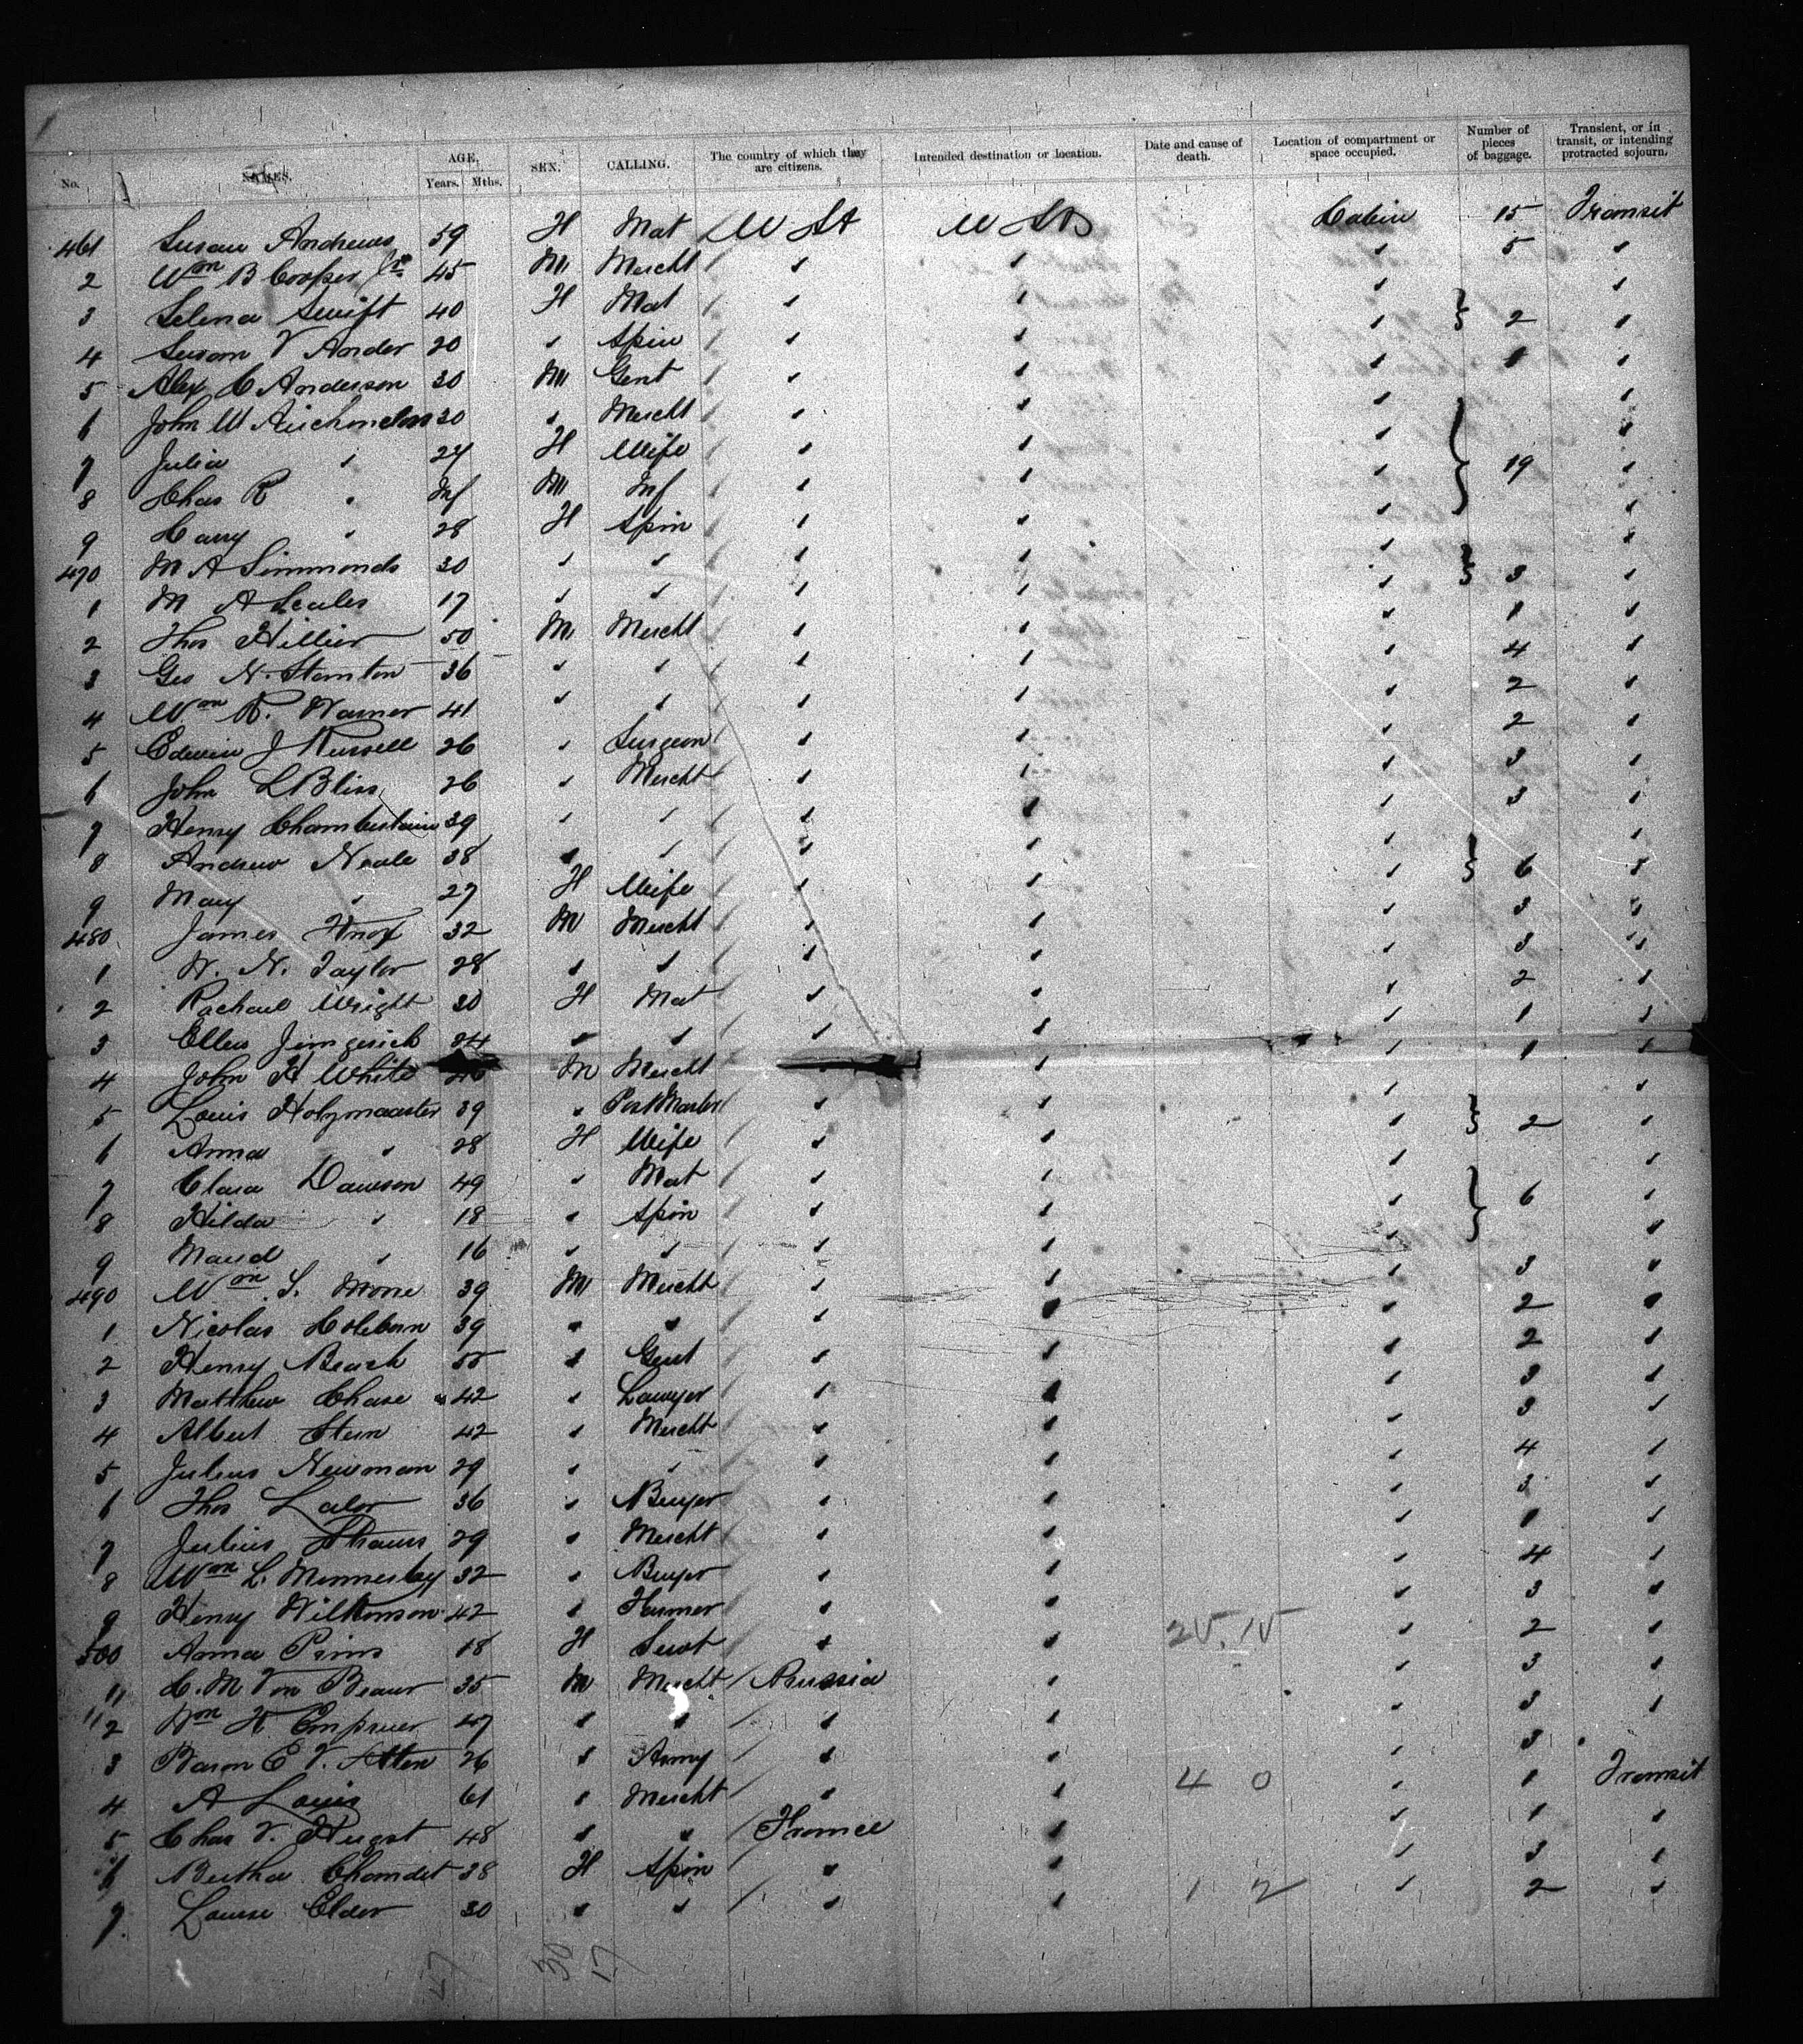 No. NAMES. AGE. Years. Mths. SEX. CALLING. The country of which they are citizens. Intended destination or location. Date and cause of death. Location of compartment or space occupied. Number of pieces of baggage. Transient, or in transit, or intending protracted sojourn.
461 Susan Andrews 59 H Mat U St U Sts Cabin 15 Transit
2 Wm B Cooper Jr 45 M Mercht " " " 5 "
3 Selena Swift 40 H Mat " " " "
4 Susan V Ander 20 " Spin " " " 2 "
5 Alex C Anderson 30 M Gent " " " 1 "
6 John W 30 " Mercht " " " "
7 Julia " 24 H Wife " " " "
8 Chas R " Inf M Inf " " " 19 "
9 Carry " 28 H Spin " " " "
470 M A Simmonds 30 " " " " " "
1 M A Scales 17 " " " " " 3 "
2 Thos Hillier 50 M Mercht " " " 1 "
3 Geo N. Stanton 36 " " " " " 4 "
4 Wm R. Warner 41 " " " " " 2 "
5 Edwin J Russell 26 " Surgeon " " " 2 "
6 John L Bliss 26 " Mercht " " " 3 "
7 Henry Chamberlain 39 " " " " " 3 "
8 Andrew Neale 38 " " " " " "
9 Mary " 27 H Wife " " " 6 "
480 James Knox 32 M Mercht " " " 3 "
1 W. N. Taylor 28 " " " " " 3 "
2 Rachael Wright 30 H Mat " " " 2 "
3 Ellen 24 " " " " " 1 "
4 John H White M Mercht " " " 1 "
5 Louis Holzmaaster 39 " Post Master " " " "
6 Anna " 28 H Wife " " " 2 "
7 Clara Dawson 49 " Mat " " " "
8 Hilda " 18 " Spin " " " 6 "
9 Maud " 16 " " " " " "
490 Wm S. 39 M Mercht " " " 3 "
1 Nicolas 39 " " " " " 2 "
2 Henry Beach 55 " Gent " " " 2 "
3 Matthew Chase 42 " Lawyer " " " 3 "
4 Albert Stern 42 " Mercht " " " 3 "
5 Julius Newman 29 " " " " " 4 "
6 Thos Lalor 36 " Buyer " " " 3 "
7 Julius Straus 29 " Mercht " " " 1 "
8 Wm L. 32 " Buyer " " " 4 "
9 Henry Wilkinson 42 " Farmer " " " 3 "
500 Anna Prins 18 H Servt " " 25.15 " 2 "
1 C. M Von 35 M Mercht Prussia " " 3 "
2 Wm H 47 " " " " " 3 "
3 Baron E V. 26 " Army " " " 3 "
4 A Louis 61 " Mercht " " 4 0 " 1 Transit
5 Chas V. 48 " " France " " 1 "
6 Bertha 38 H Spin " " " 3 "
7 Louise Elder 30 " " " " 1 2 " 2 "
47 30 17